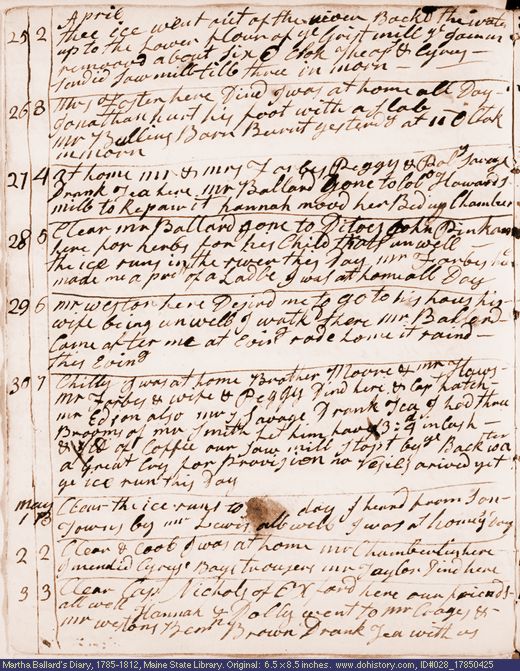 April
25 2 thee ice went out of the river Backd the water
up to the Lower flour of ye Grist mill ye Jamm
removed about six O Clok Jheas & Cyrus
tendid saw mill till three in morn
26 3 Mrs Foster here Dind I was at home all Day
Jonathan hurt his foot with a slab
mr Bullins Barn Burnt yesterd at 11 O Clok
in morn
27 4 at home mr & mrs Forbes Peggy & Savage
Drank Tea here mr Ballard gone to Colo Howards
mill to Repair it hannah movd her Bed up Chamber
28 5 Clear mr Ballard gone to Ditoes John Pinkham
here for herbs for his Child thats unwell
the ice runs in the river this Day mr Forbes
made me a of a Ladle I was at home all Day
29 6 mr weston here Desird me to go to his hous his
wife being unwell I walkt there mr Ballard
Came after me at Evind rode home it raind
this Evind
30 7 Chilly I was at home Brother Moore & mr Hows
mr Forbes & wife & Peggy Dind here & Cap Hatch
mr Edson also mrs Savage Drank Tea I had three
Brooms of mr Smith let him have 3/4 in Cash
& of Coffee our saw mill stopt by ye Back water
a great Cry for Provision no vesels arived yet
ye ice run this Day
may
1 Clear the ice runs to day I heard from Jon
Towns by mr Lewis all well I was at home ye Day
2 2 Clear & Cool I was at home mr Chamberlin here
I mended Cyrus Bags trousers mr Taylor Dind here
3 3 Clear Cap Nichols of Oxford here our friends
all well Hannah & Dolly went to mr Crages &
mr westons Brown Drank Tea with us
Martha Ballard's Diary, 1785-1812, Maine State Library. Original: 6.5 x 8.5 inches. www.dohistory.com/ ID#028_17850425